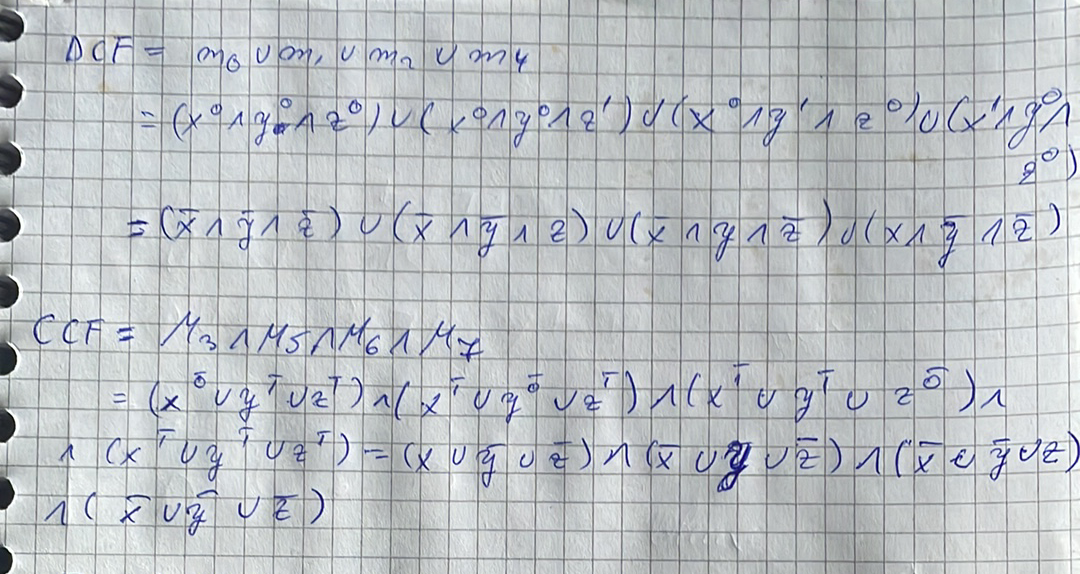 DCF = m₀ ∪ m₁ ∪ m₂ ∪ m₄
= (x⁰ ∧ y⁰ ∧ z⁰) ∪ (x⁰ ∧ y⁰ ∧ z¹) ∪ (x⁰ ∧ y¹ ∧ z⁰) ∪ (x¹ ∧ y⁰ ∧
z⁰)
= (x̄ ∧ ȳ ∧ z̄) ∪ (x̄ ∧ ȳ ∧ z) ∪ (x̄ ∧ y ∧ z̄) ∪ (x ∧ ȳ ∧ z̄)
CCF = M₃ ∧ M₅ ∧ M₆ ∧ M₇
= (x^0̄ ∪ y^1̄ ∪ z^1̄) ∧ (x^1̄ ∪ y^0̄ ∪ z^1̄) ∧ (x^1̄ ∪ y^1̄ ∪ z^0̄) ∧
∧ (x^1̄ ∪ y^1̄ ∪ z^1̄) = (x ∪ ȳ ∪ z̄) ∧ (x̄ ∪ y ∪ z̄) ∧ (x̄ ∪ ȳ ∪ z)
∧ (x̄ ∪ ȳ ∪ z̄)